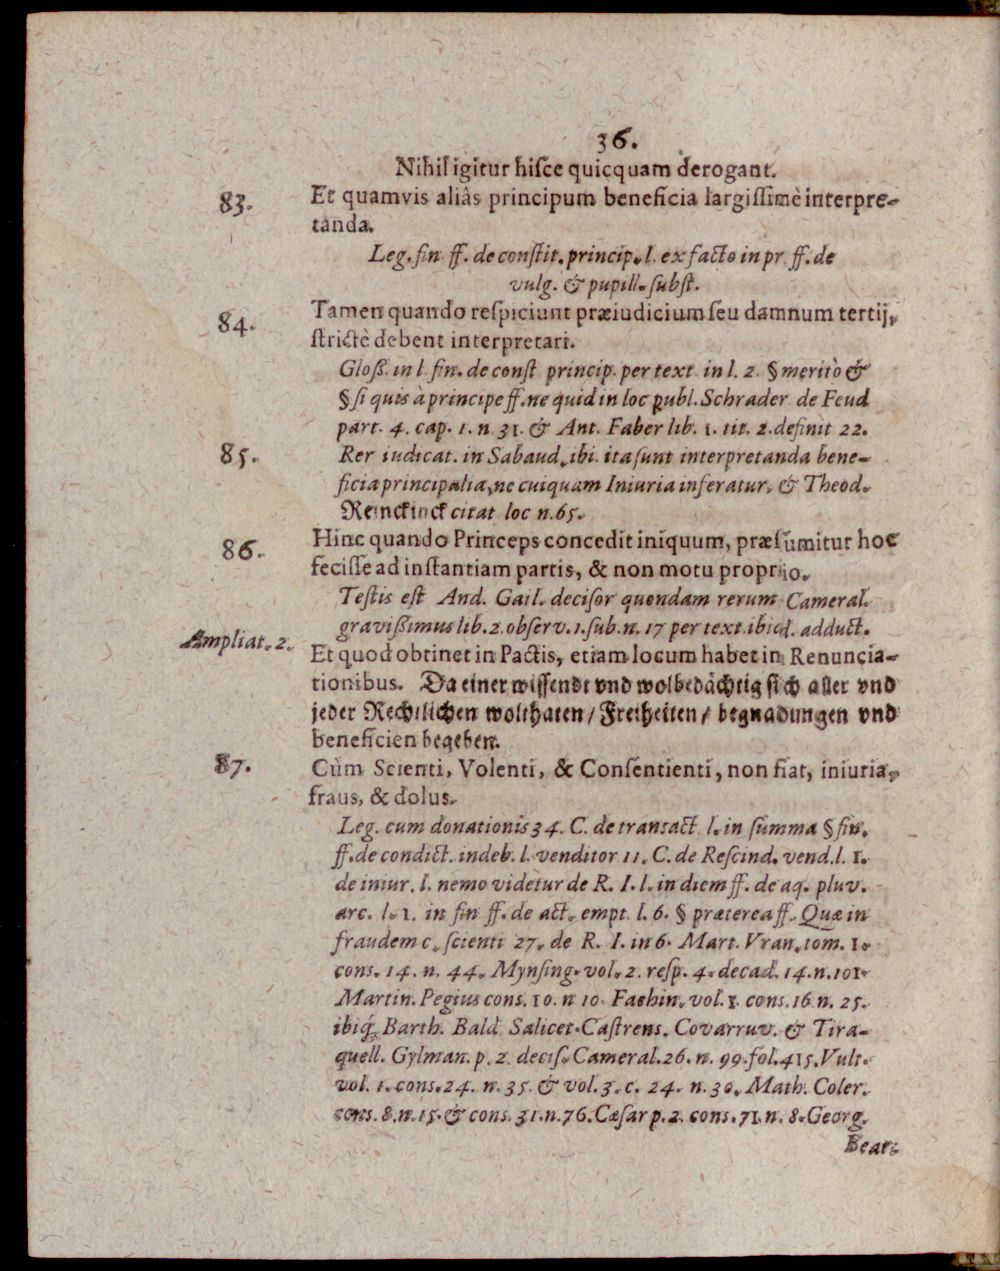 36.
Nihil igitur hiſce quicquam derogant.
83. Et quamvis aliâs principum beneficia largiſſimè interpre-
tanda.
Leg. fin ff. de conſtit. princip. l. ex facto in pr ff. de
vulg. & pupill. ſubſt.
84. Tamen quando reſpiciunt præiudicium ſeu damnum tertij,
ſtrictè debent interpretari.
Gloß. in l. fin. de conſt princip. per text in l. 2. § meritò &
§ ſi quis à principe ff. ne quid in loc publ. Schrader de Feud
part. 4. cap. 1. n 31. & Ant. Faber lib. 1. tit. 2. definit 22.
85. Rer iudicat. in Sabaud. ibi. ita ſunt interpretanda bene-
ficia principalia, ne cuiquam Iniuria inferatur, & Theod.
Reinckinck citat loc n. 65.
86. Hinc quando Princeps concedit iniquum, præſumitur hoc
feciſſe ad inſtantiam partis, & non motu proprio.
Teſtis eſt And. Gail. deciſor quondam rerum Cameral.
gravißimus lib. 2. obſerv. 1. ſub. n. 17 per text. ibid. adduct.
Ampliat. 2. Et quod obtinet in Pactis, etiam locum habet in Renuncia-
tionibus. Da einer wiſſendt vnd wolbedächtig ſich aller vnd
jeder Rechtlichen wolthaten / Freiheiten / begnadungen vnd
beneficien begeben.
87. Cùm Scienti, Volenti, & Conſentienti, non fiat, iniuria,
fraus, & dolus.
Leg. cum donationis 34. C. de transact l. in ſumma § fin.
ff. de condict. indeb. l. venditor 11. C. de Reſcind. vend. l. 1.
de iniur. l. nemo videtur de R. I. l. in diem ff. de aq. pluv.
arc. l. 1. in fin ff. de act. empt. l. 6. § præterea ff. Quæ in
fraudem c. ſcienti 27. de R. I. in 6. Mart. Vran. tom. 1.
cons. 14. n. 44. Mynſing. vol. 2. reſp. 4. decad. 14. n. 101.
Martin. Pegius cons. 10. n 10 Fachin. vol. 1. cons. 16. n. 25.
ibiq́; Barth. Bald Salicet. Caſtrens. Covarruv. & Tira-
quell. Gylman. p. 2. deciſ. Cameral. 26. n. 99. fol. 415. Vult.
vol. 1. cons. 24. n. 35. & vol. 3. c. 24. n. 30. Math. Coler.
cons. 8. n. 15. & cons. 31. n. 76. Cæſar p. 2. cons. 71. n. 8. Georg.
Beat.